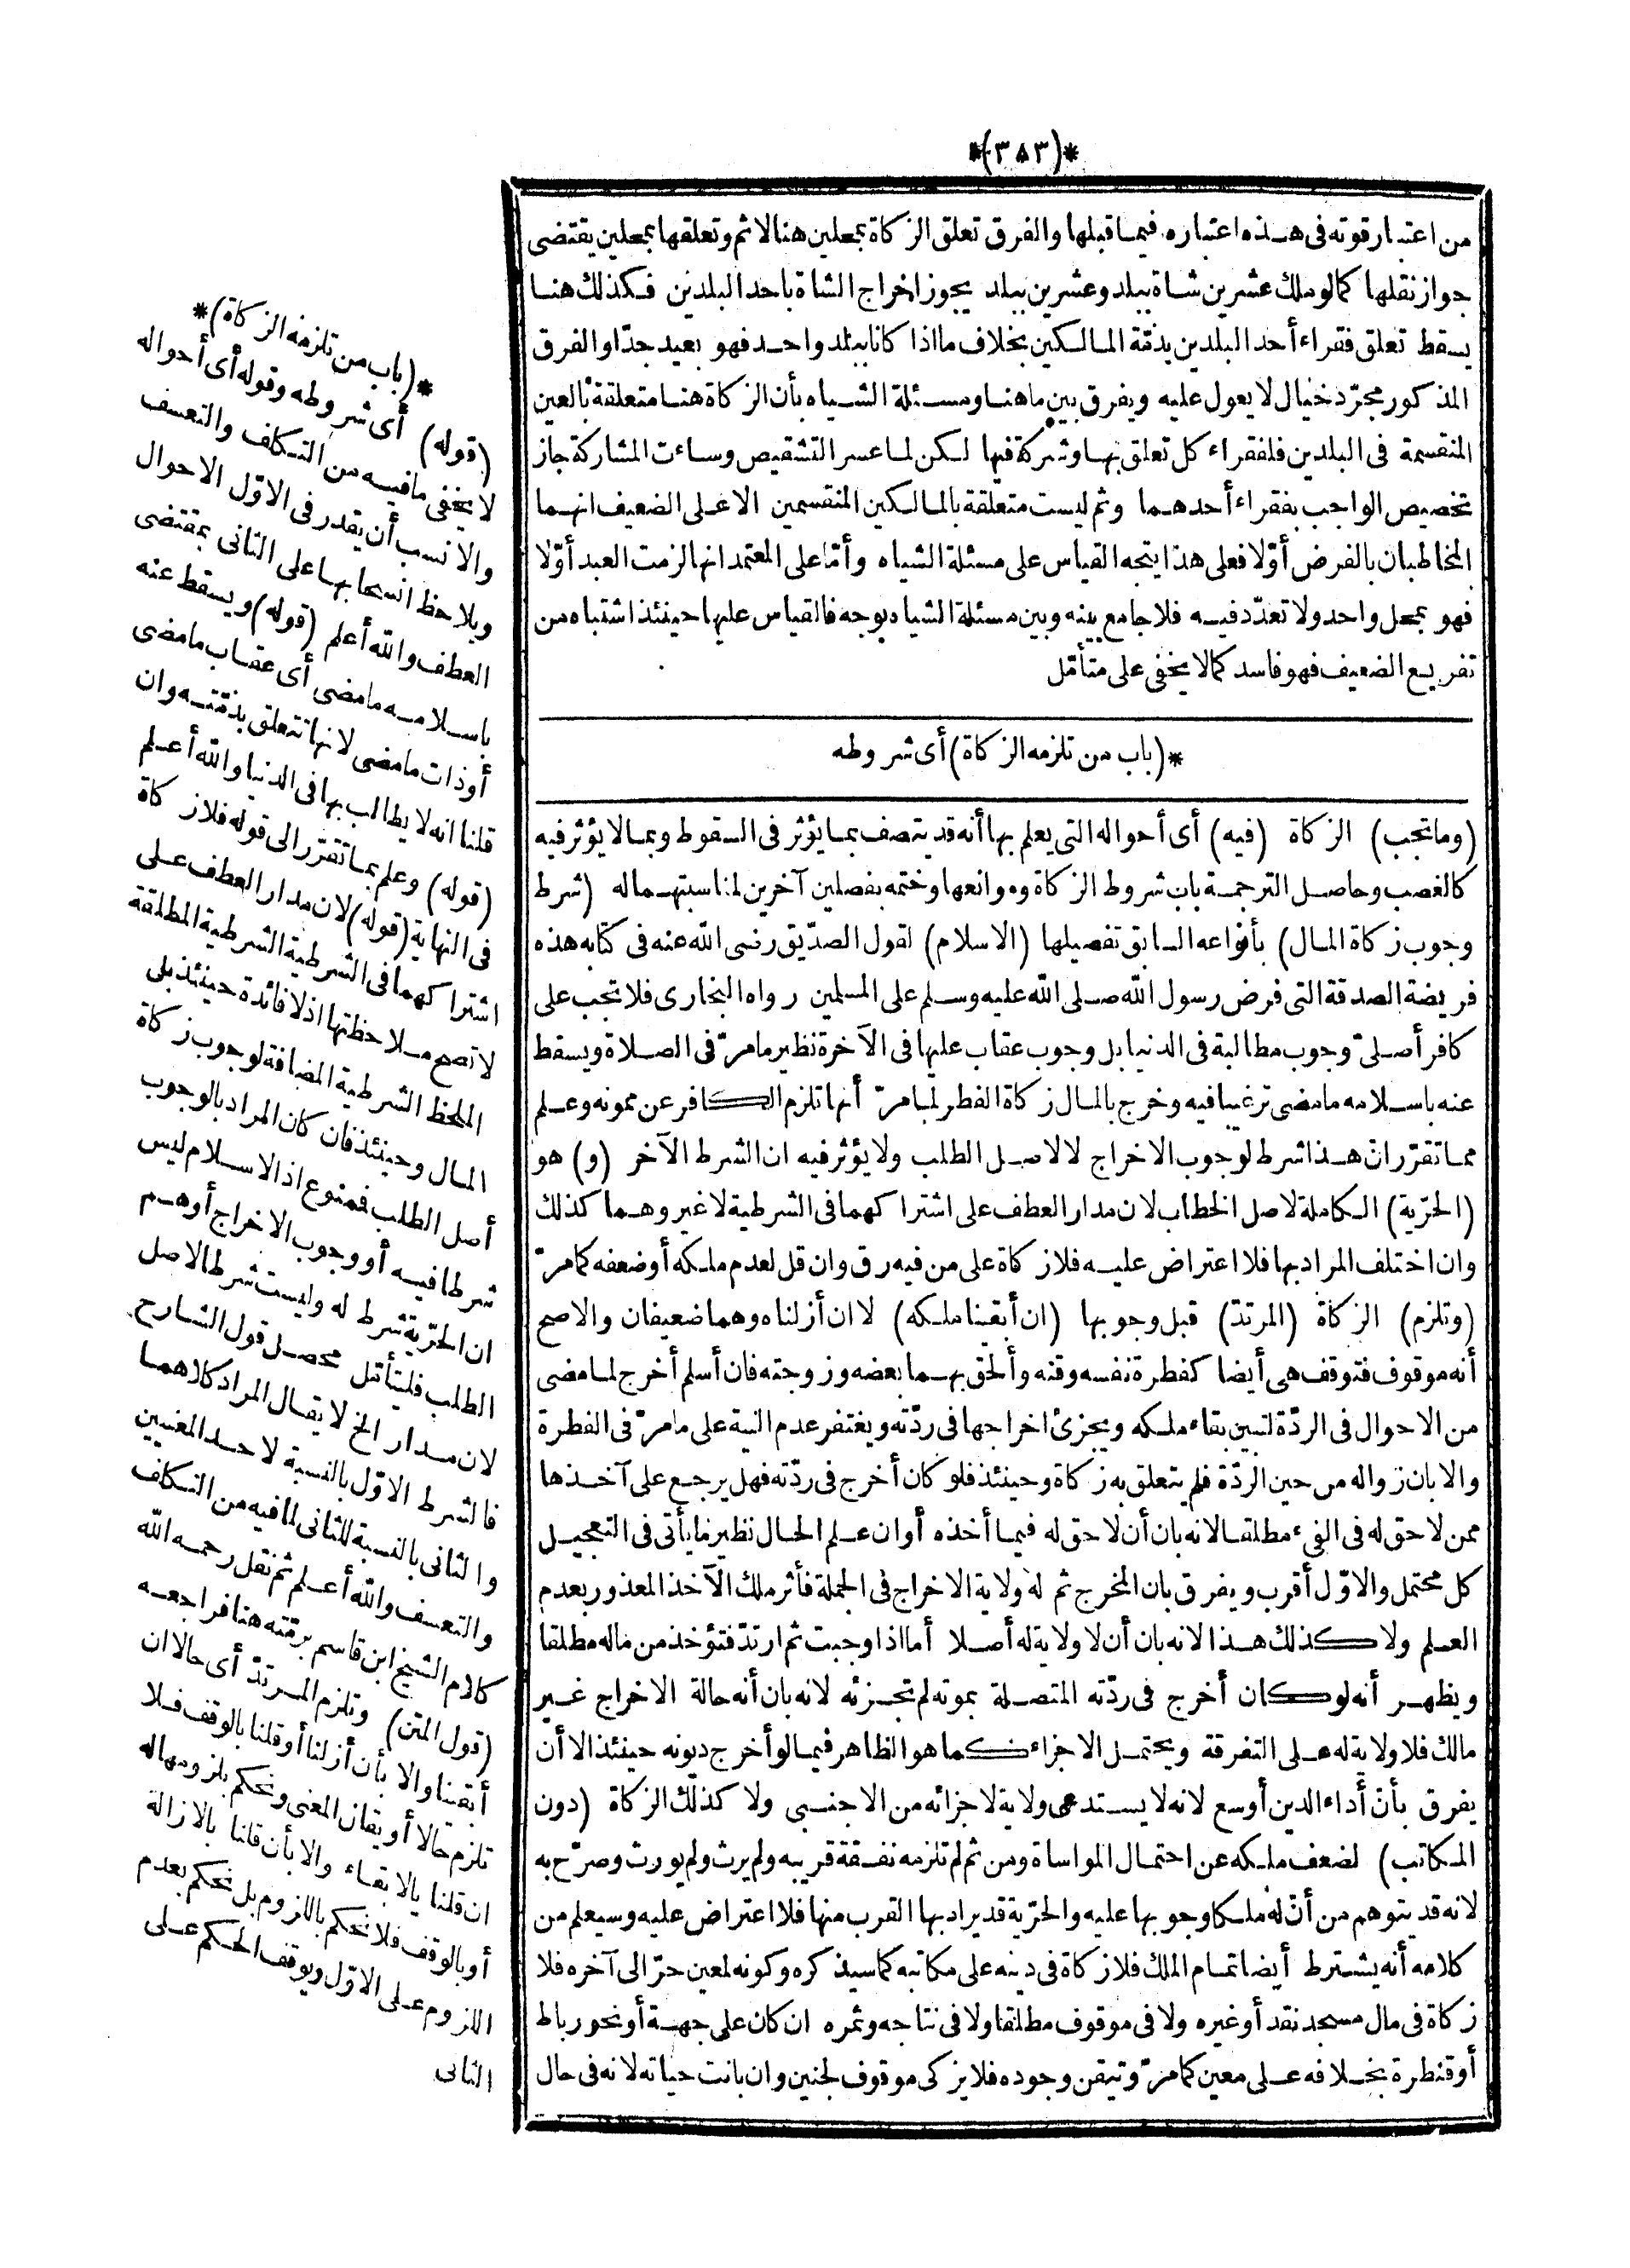 *(٣٨٣)*
من اعتبار قوته فى هذه اعتباره فيما قبلها والفرق تعلق الزكاة بمحلين هنا لا ثم وتعلقها بمحلين يقتضى
جواز نقلها كما لو ملك عشرين شاة ببلد وعشرين ببلد يجوز اخراج الشاة باحد البلدين فكذلك هنا
يسقط تعلق فقراء أحد البلدين بذمّة المالكين بخلاف ما اذا كانا ببلد واحد فهو بعيد جدّا والفرق
المذكور مجرّد خيال لا يعول عليه ويفرق بين ما هنا ومسئلة الشياه بأن الزكاة هنا متعلقة بالعين
المنقسمة فى البلدين فلفقراء كل تعلق بها وشركة فيها لكن لما عسر التشقيص وساءت المشاركة جاز
تخصيص الواجب بفقراء أحدهما وثم ليست متعلقة بالمالكين المنقسمين الا على الضعيف انهما
المخاطبان بالفرض أوّلا فعلى هذا يتجه القياس على مسئلة الشياه وأمّا على المعتمد انها لزمت العبد أوّلا
فهو بمحل واحد ولا تعدّد فيه فلا جامع بينه وبين مسئلة الشياه بوجه فالقياس عليها حينئذ اشتباه من
تفريع الضعيف فهو فاسد كما لا يخفى على متأمّل
*(باب من تلزمه الزكاة) أى شروطه
(وما تجب) الزكاة (فيه) أى أحواله التى يعلم بها أنه قد يتصف بما يؤثر فى السقوط وبما لا يؤثر فيه
كالغصب وحاصل الترجمة باب شروط الزكاة وموانعها وختمه بفصلين آخرين لمناسبتهما له (شرط
وجوب زكاة المال) بأنواعه السابق تفصيلها (الاسلام) لقول الصدّيق رضى الله عنه فى كتابه هذه
فريضة الصدقة التى فرض رسول الله صلى الله عليه وسلم على المسلمين رواه البخارى فلا تجب على
كافر أصلىّ وجوب مطالبة فى الدنيا بل وجوب عقاب عليها فى الآخرة نظير ما مرّ فى الصلاة ويسقط
عنه باسلامه ما مضى ترغيبا فيه وخرج بالمال زكاة الفطر لما مرّ أنها تلزم الكافر عن ممونه وعلم
مما تقرّر انّ هذا شرط لوجوب الاخراج لا لاصل الطلب ولا يؤثر فيه ان الشرط الآخر (و) هو
(الحرّية) الكاملة لاصل الخطاب لان مدار العطف على اشتراكهما فى الشرطية لا غير وهما كذلك
وان اختلف المراد بها فلا اعتراض عليه فلا زكاة على من فيه رق وان قل لعدم ملكه أو ضعفه كما مرّ
(وتلزم) الزكاة (المرتدّ) قبل وجوبها (ان أبقينا ملكه) لا ان أزلناه وهما ضعيفان والاصح
أنه موقوف فتوقف هى أيضا كفطرة نفسه وقنه وألحق بهما بعضه وزوجته فان أسلم أخرج لما مضى
من الاحوال فى الردّة لتبين بقاء ملكه ويجزئ اخراجها فى ردّته ويغتفر عدم النية على ما مرّ فى الفطرة
والا بان زواله من حين الردّة فلم يتعلق به زكاة وحينئذ فلو كان أخرج فى ردّته فهل يرجع على آخذها
ممن لا حق له فى الفىء مطلقا لانه بان أن لا حق له فيما أخذه أو ان علم الحال نظير ما يأتى فى التعجيل
كل محتمل والاوّل أقرب ويفرق بان المخرج ثم له ولاية الاخراج فى الجملة فأثر ملك الآخذ المعذور بعدم
العلم ولا كذلك هذا لانه بان أن لا ولاية له أصلا أما اذا وجبت ثم ارتدّ فتؤخذ من ماله مطلقا
ويظهر أنه لو كان أخرج فى ردّته المتصلة بموته لم تجزئه لانه بان أنه حالة الاخراج غير
مالك فلا ولاية له على التفرقة ويحتمل الاجزاء كما هو الظاهر فيما لو أخرج ديونه حينئذ الا أن
يفرق بأنّ أداء الدين أوسع لانه لا يستدعى ولاية لاجزائه من الاجنبى ولا كذلك الزكاة (دون
المكاتب) لضعف ملكه عن احتمال المواساة ومن ثم لم تلزمه نفقة قريبه ولم يرث ولم يورث وصرّح به
لانه قد يتوهم من أنّ له ملكا وجوبها عليه والحرّية قد يراد بها القرب منها فلا اعتراض عليه وسيعلم من
كلامه أنه يشترط أيضا تمام الملك فلا زكاة فى دينه على مكاتبه كما سيذكره وكونه لمعين حرّ الى آخره فلا
زكاة فى مال مسجد نقد أو غيره ولا فى موقوف مطلقا ولا فى نتاجه وثمره ان كان على جهة أو نحو رباط
أو قنطرة بخلافه على معين كما مرّ وتيقن وجوده فلا يزكى موقوف لجنين وان بانت حياته لانه فى حال
*(باب من تلزمه الزكاة)*
(قوله) أى شروطه وقوله أى أحواله
لا يخفى ما فيه من التكلف والتعسف
والانسب أن يقدر فى الاوّل الاحوال
ويلاحظ انسحابها على الثانى بمقتضى
العطف والله أعلم (قوله) ويسقط عنه
باسلامه ما مضى أى عقاب ما مضى
أو ذات ما مضى لانها تتعلق بذمّته وان
قلنا انه لا يطالب بها فى الدنيا والله أعلم
(قوله) وعلم بما تقرّر الى قوله فلا زكاة
فى النهاية (قوله) لان مدار العطف على
اشتراكهما فى الشرطية الشرطية المطلقة
لا تصح ملاحظتها اذ لا فائدة حينئذ بلى
الملحظ الشرطية المضافة لوجوب زكاة
المال وحينئذ فان كان المراد بالوجوب
أصل الطلب فممنوع اذ الاسلام ليس
شرطا فيه أو وجوب الاخراج أوهم
ان الحرّية شرط له وليست شرطا لاصل
الطلب فليتأمّل محصل قول الشارح
لان مدار الخ لا يقال المراد كلاهما
فالشرط الاوّل بالنسبة لاحد المعنيين
والثانى بالنسبة للثانى لما فيه من التكلف
والتعسف والله أعلم ثم نقل رحمه الله
كلام الشيخ ابن قاسم برمّته هنا فراجعه
(قول المتن) وتلزم المرتدّ أى حالا ان
أبقينا والا بأن أزلنا أو قلنا بالوقف فلا
تلزم حالا أو يقال المعنى ونحكم بلزومها له
ان قلنا بالابقاء والا بأن قلنا بالازالة
أو بالوقف فلا نحكم باللزوم بل نحكم بعدم
اللزوم على الاوّل ويوقف الحكم على
الثانى